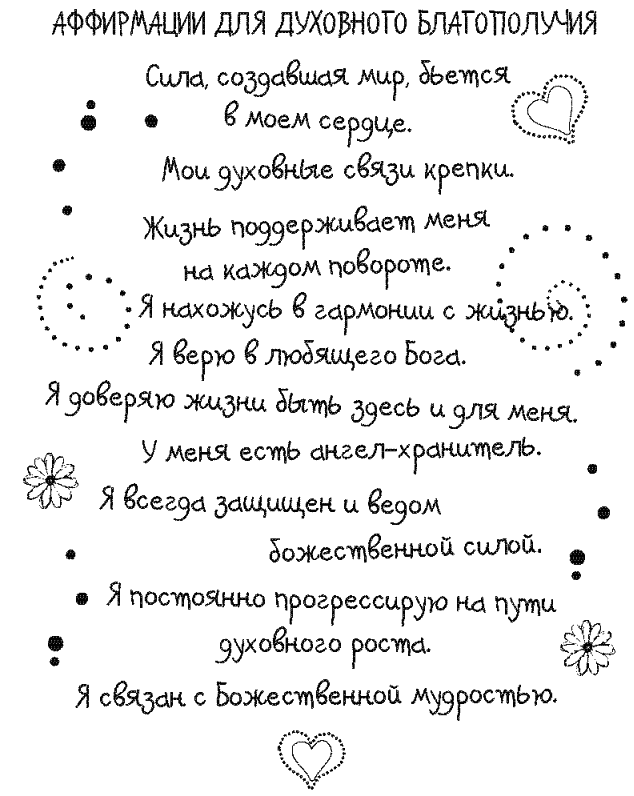 АФФИРМАЦИИ ДЛЯ ДУХОВНОГО БЛАГОПОЛУЧИЯ
Сила, создавшая мир, бьется
в моем сердце.
Мои духовные связи крепки.
Жизнь поддерживает меня
на каждом повороте.
Я нахожусь в гармонии с жизнью.
Я верю в любящего Бога.
Я доверяю жизни быть здесь и для меня.
У меня есть ангел-хранитель.
Я всегда защищен и ведом
божественной силой.
Я постоянно прогрессирую на пути
духовного роста.
Я связан с Божественной мудростью.